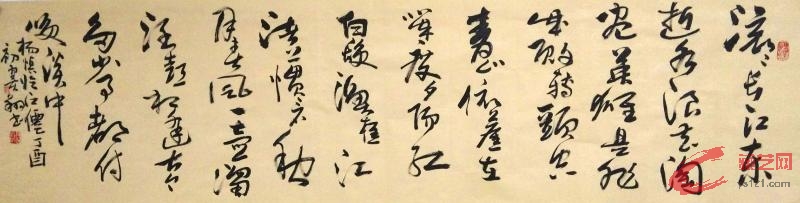 滚滚长江东
逝水浪花淘
尽英雄是非
成败转头空
青山依旧在
几度夕阳红
白发渔樵江
渚上惯看秋
月春风一壶浊
酒喜相逢古今
多少事都付
笑谈中
杨慎临江仙丁酉